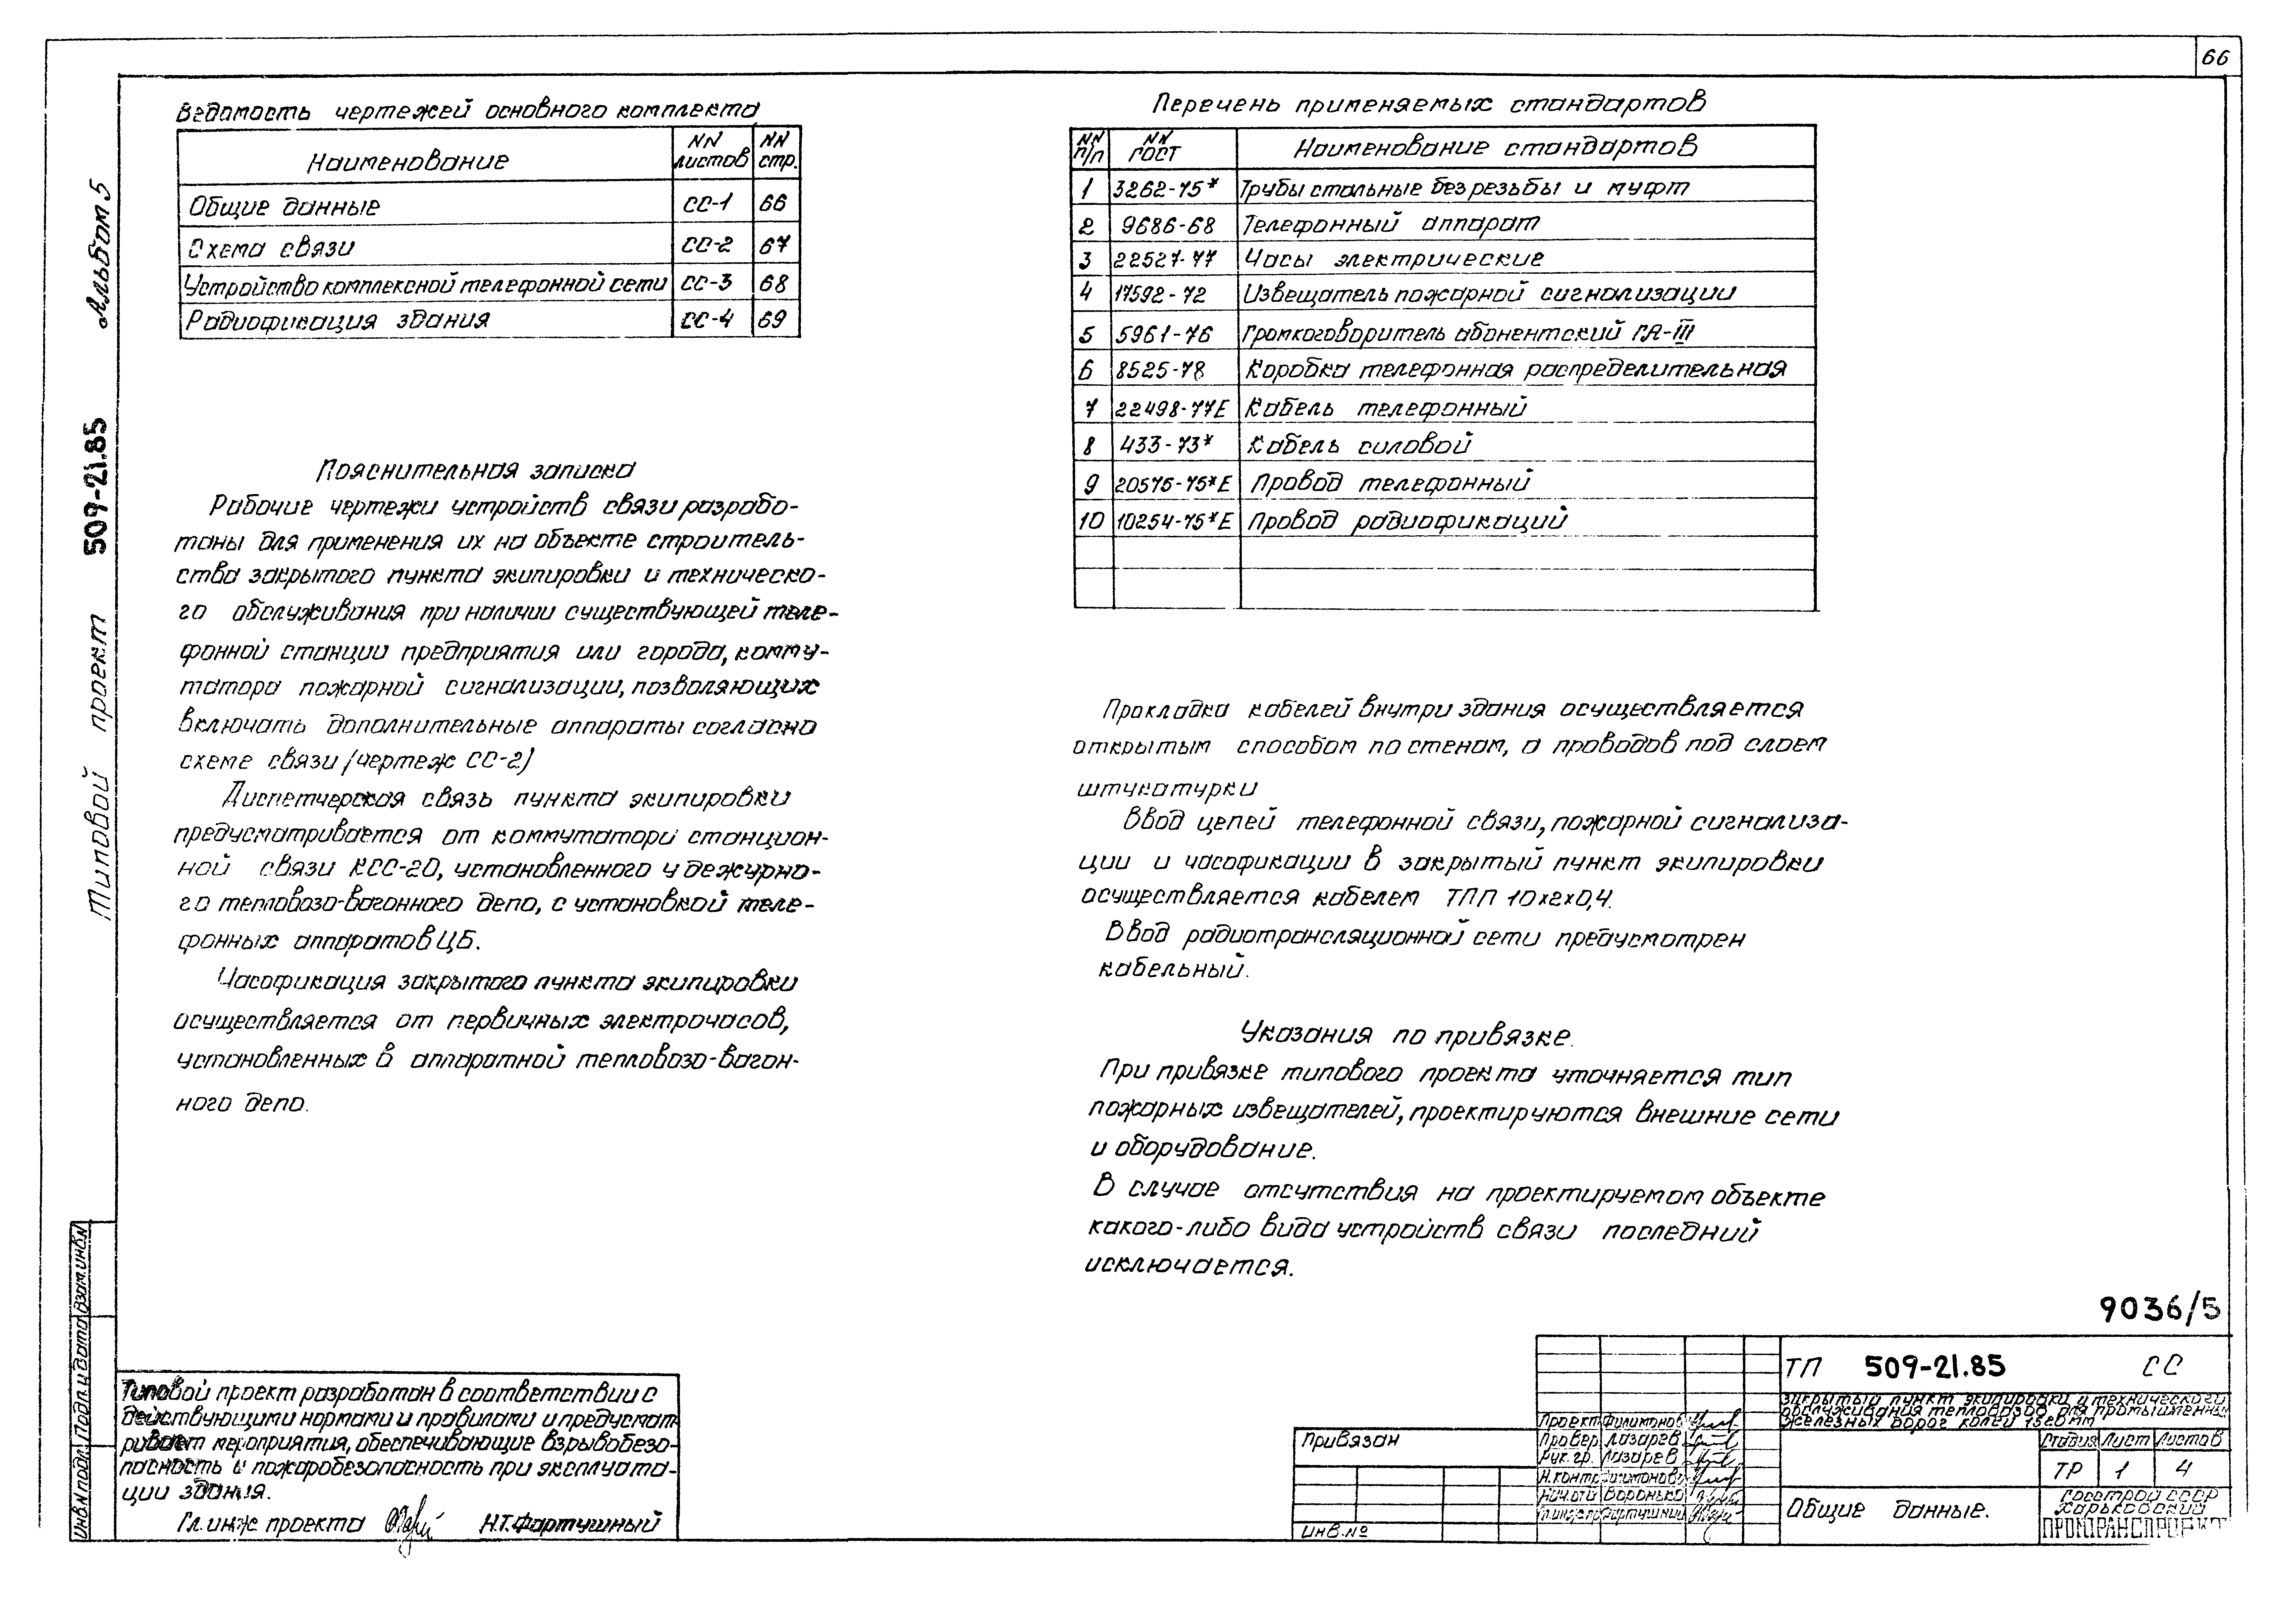 66
Альбом 5
Типовой проект 509-21.85
Ведомость чертежей основного комплекта
Наименование | NN листов | NN стр.
Общие данные | СС-1 | 66
Схема связи | СС-2 | 67
Устройство комплексной телефонной сети | СС-3 | 68
Радиофикация здания | СС-4 | 69
Пояснительная записка
Рабочие чертежи устройств связи разрабо-
таны для применения их на объекте строитель-
ства закрытого пункта экипировки и техническо-
го обслуживания при наличии существующей теле-
фонной станции предприятия или города, комму-
татора пожарной сигнализации, позволяющих
включать дополнительные аппараты согласно
схеме связи /чертеж СС-2)
Диспетчерская связь пункта экипировки
предусматривается от коммутатори станцион-
ной связи КСС-20, установленного у дежурно-
го тепловозо-вагонного депо, с установкой теле-
фонных аппаратов ЦБ.
Часофикация закрытого пункта экипировки
осуществляется от первичных электрочасов,
установленных в аппаратной тепловозо-вагон-
ного депо.
Перечень применяемых стандартов
NN п/п | NN ГОСТ | Наименование стандартов
1 | 3262-75* | Трубы стальные без резьбы и муфт
2 | 9686-68 | Телефонный аппарат
3 | 22527-77 | Часы электрические
4 | 17592-72 | Извещатель пожарной сигнализации
5 | 5961-76 | Громкоговоритель абонентский ГА-III
6 | 8525-78 | Коробка телефонная распределительная
7 | 22498-77Е | Кабель телефонный
8 | 433-73* | Кабель силовой
9 | 20575-75*Е | Провод телефонный
10 | 10254-75*Е | Провод радиофикаций
Прокладка кабелей внутри здания осуществляется
открытым способом по стенам, а проводов под слоем
штукатурки
Ввод цепей телефонной связи, пожарной сигнализа-
ции и часофикации в закрытый пункт экипировки
осуществляется кабелем ТПП 10х2х0,4.
Ввод радиотрансляционной сети предусмотрен
кабельный.
Указания по привязке.
При привязке типового проекта уточняется тип
пожарных извещателей, проектируются внешние сети
и оборудование.
В случае отсутствия на проектируемом объекте
какого-либо вида устройств связи последний
исключается.
9036/5
Инв.N подл. Подп. и дата Взам.инв.N
Типовой проект разработан в соответствии с
действующими нормами и правилами и предусмат-
ривает мероприятия, обеспечивающие взрывобезо-
пасность и пожаробезопасность при эксплуата-
ции здания.
Гл. инж проекта Н.Т.Фартушный
Привязан
Инв.№
Проект. Филимонов
Провер. Лазарев
Рук. гр. Лазарев
Н.контр Филимонов
Нач.отд Воронько
Гл.инж.пр Фартушный
ТП 509-21.85 СС
Закрытый пункт экипировки и технического
обслуживания тепловозов для промышленных
железных дорог колеи 1520 мм
Стадия Лист Листов
ТР 1 4
Общие данные.
Госстрой СССР
Харьковский
ПРОМТРАНСПРОЕКТ